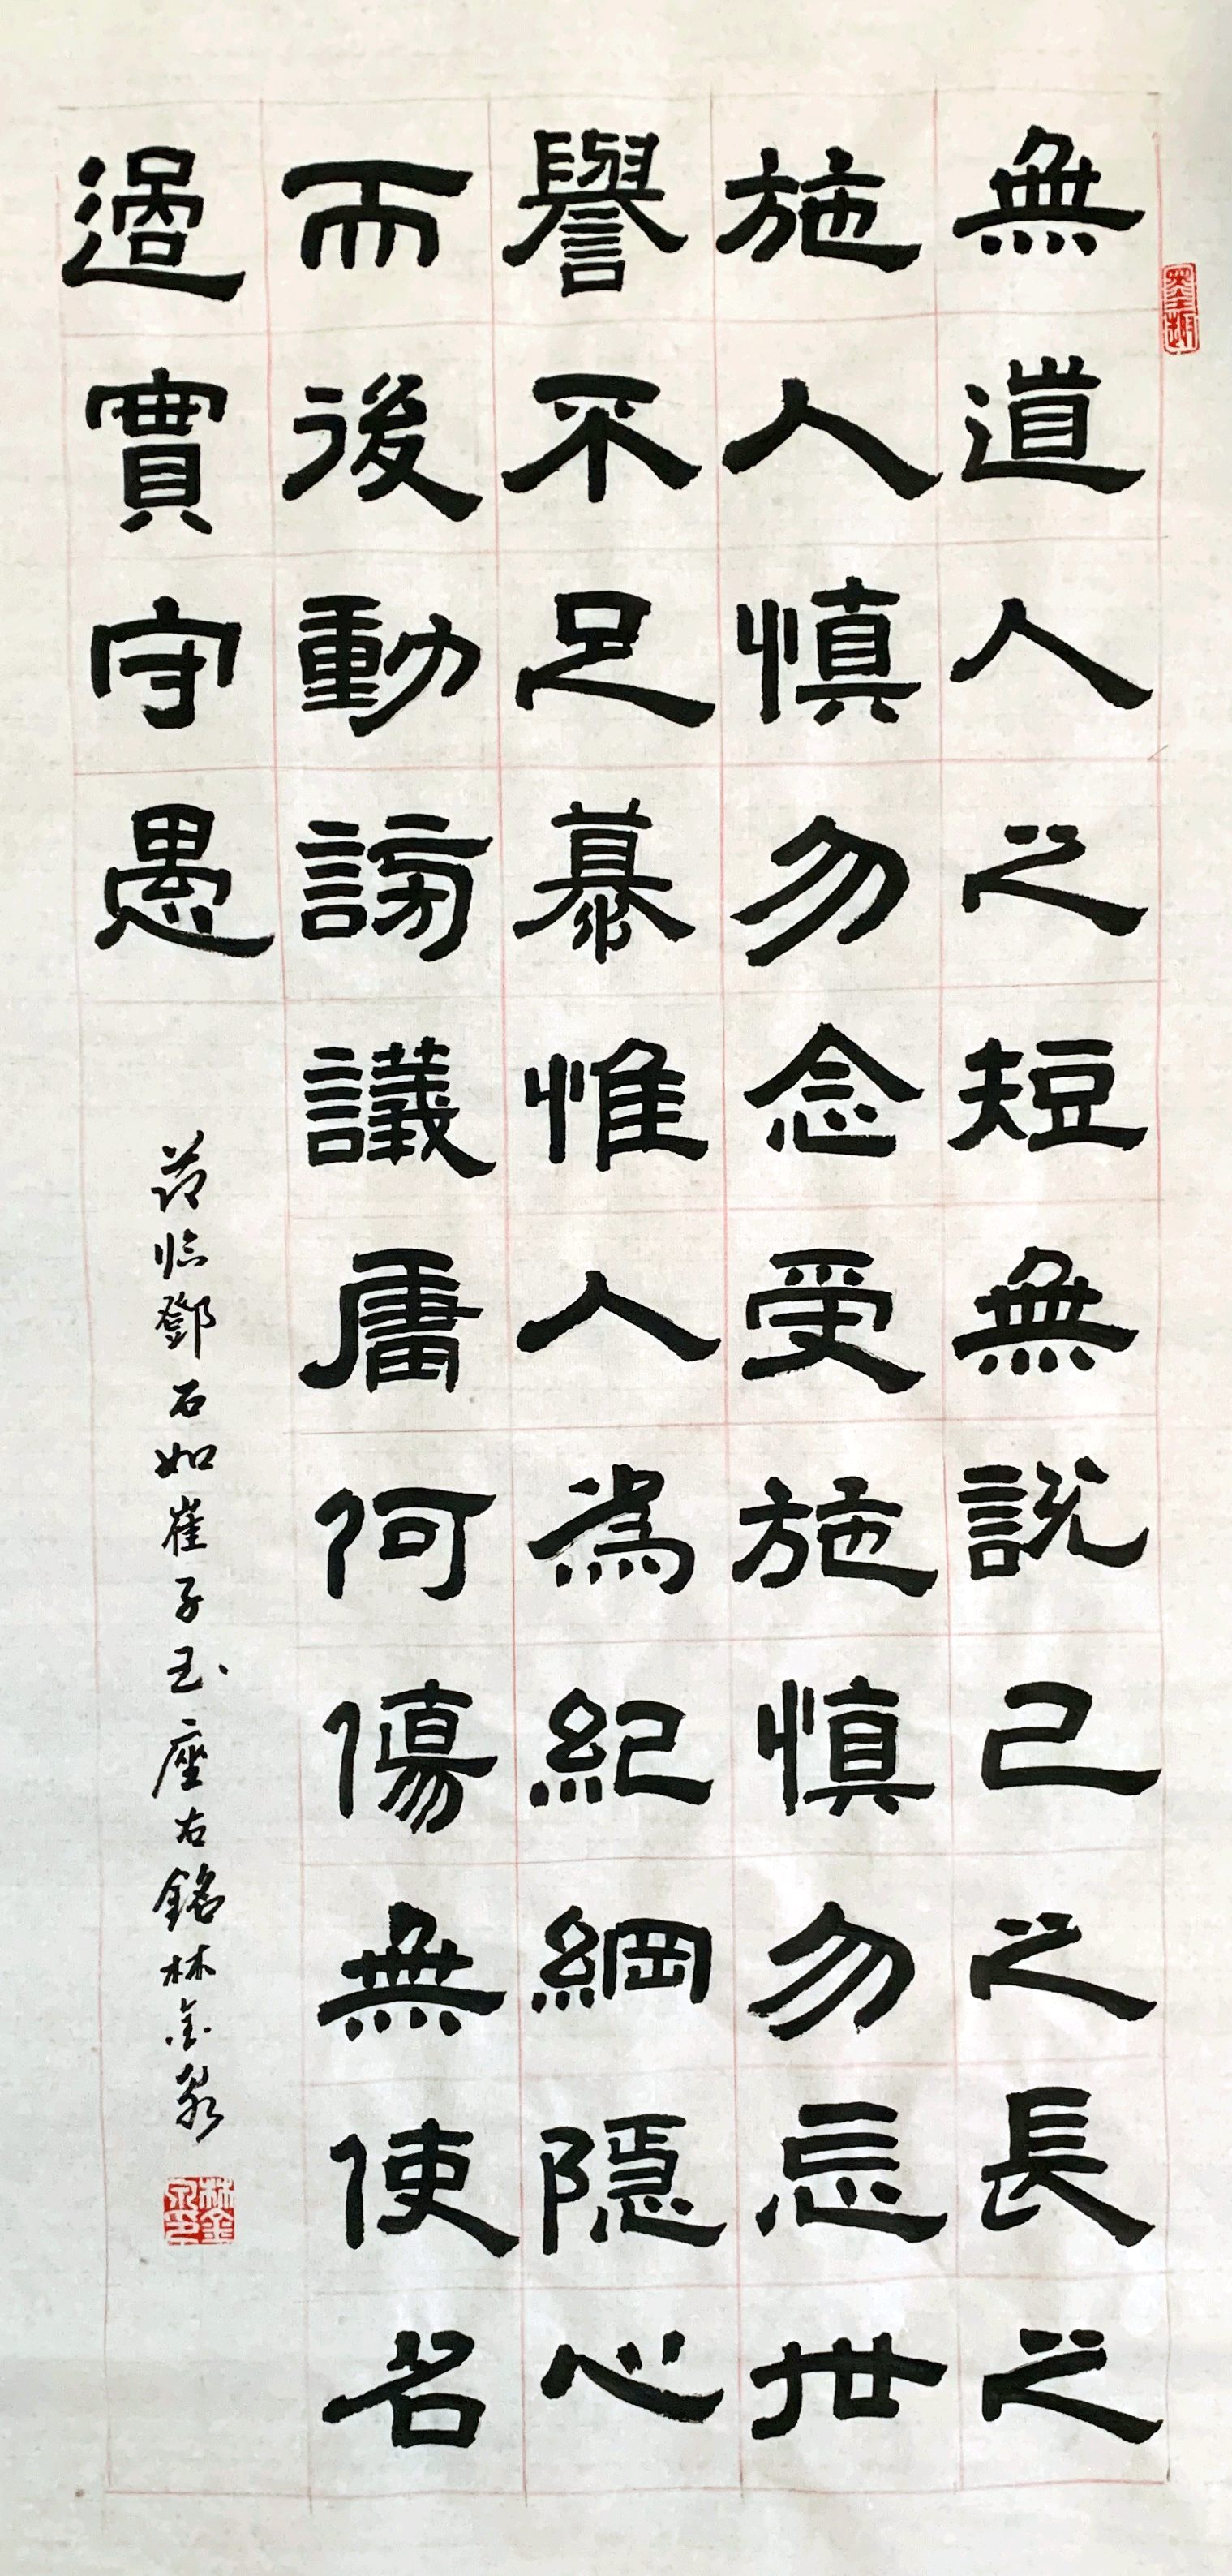 無道人之短無說己之長之
施人慎勿念受施慎勿忘世
譽不足慕惟人為紀綱隱心
而後動謗議庸何傷無使名
過實守愚
節臨鄧石如崔子玉座右銘林金泉
墨趣
林金泉印